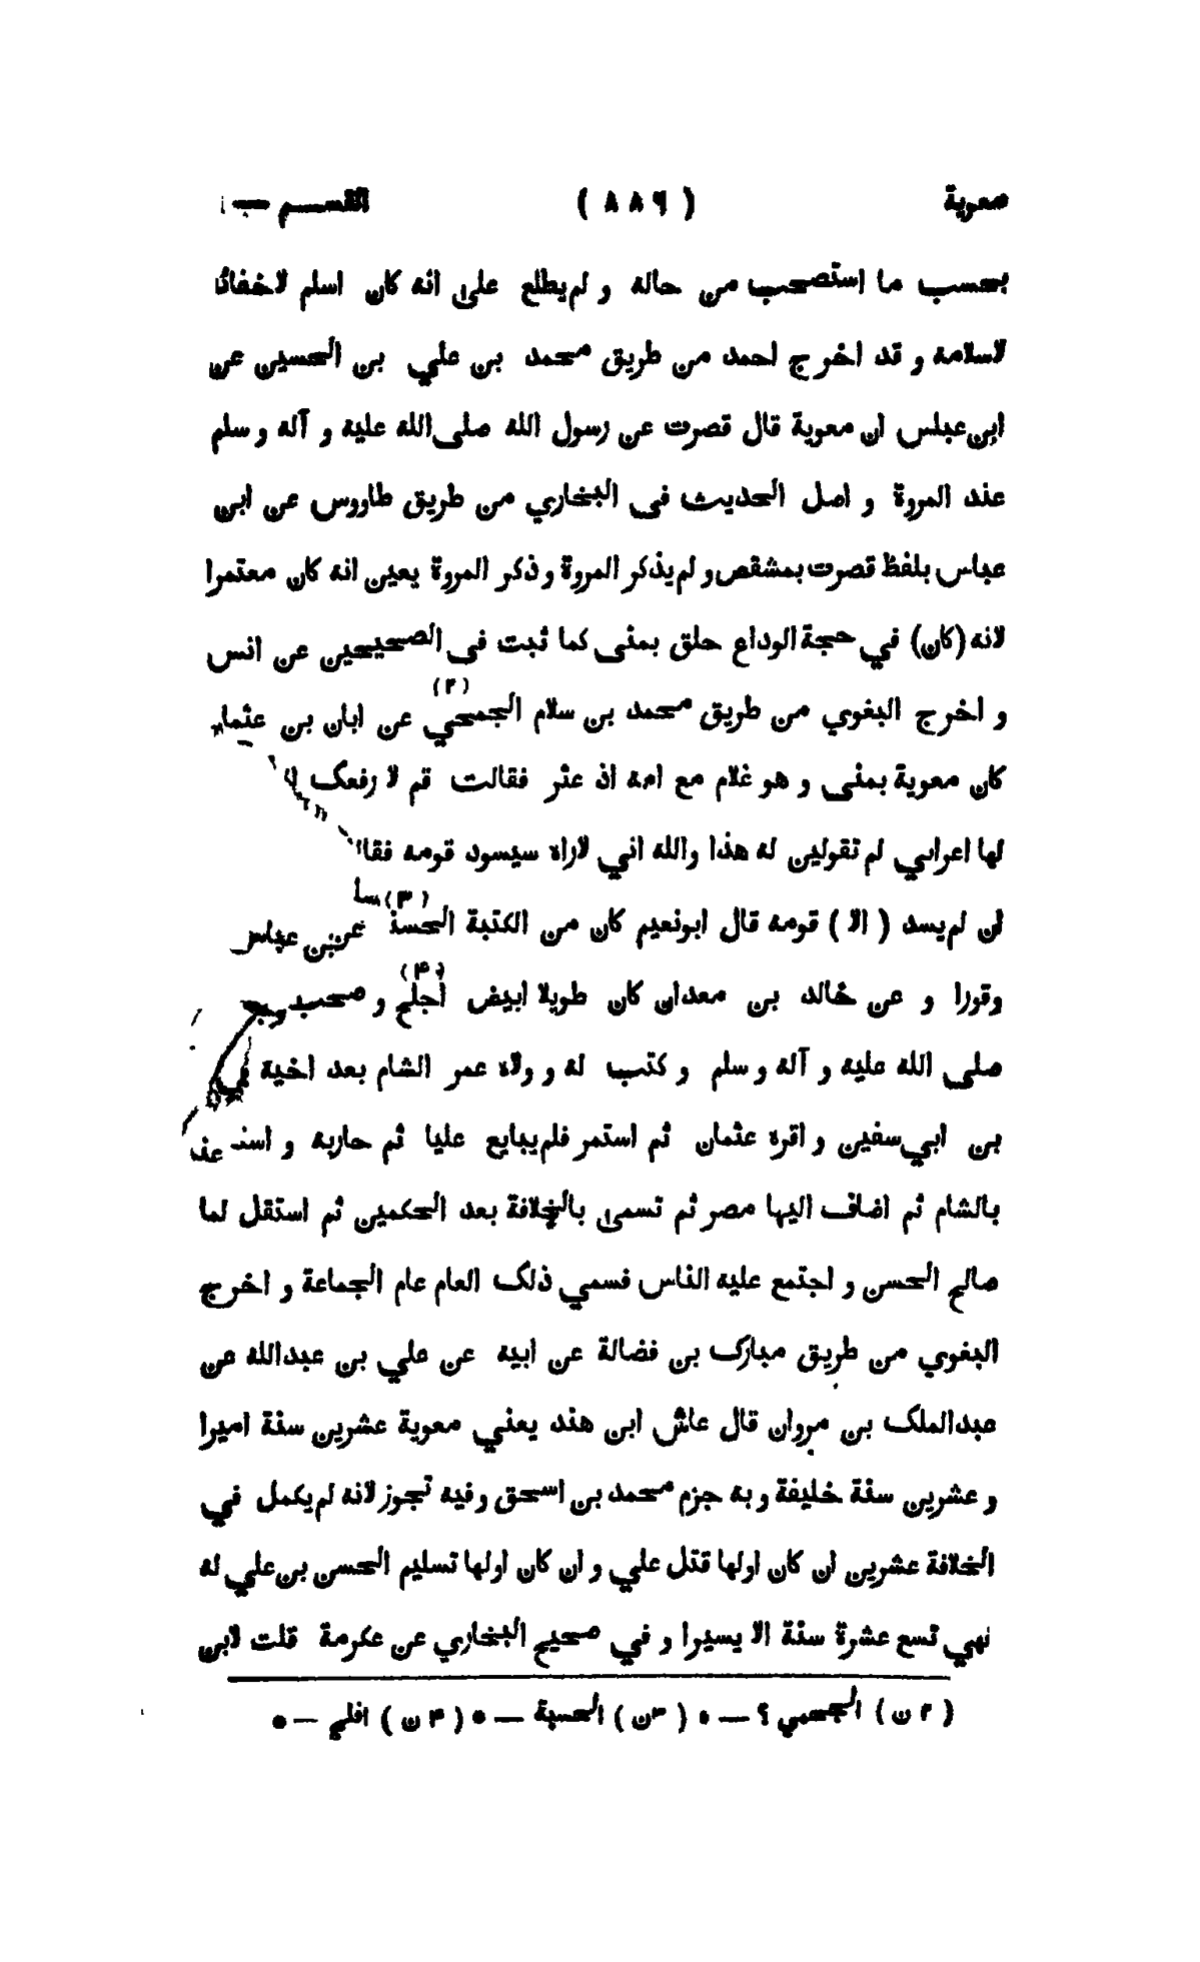 معوية ( ٨٨٦ ) القسم
بحسب ما استصحب من حاله و لم يطلع على انه كان اسلم لاخفائه
لاسلامه و قد اخرج احمد من طريق محمد بن علي بن الحسين عن
ابن عباس ان معوية قال قصرت عن رسول الله صلى الله عليه و آله و سلم
عند المروة و اصل الحديث فى البخاري من طريق طاووس عن ابن
عباس بلفظ قصرت بمشقص و لم يذكر المروة و ذكر المروة يعين انه كان معتمرا
لانه (كان) في حجة الوداع حلق بمنى كما ثبت فى الصحيحين عن انس
و اخرج البغوي من طريق محمد بن سلام الجمحي (٢) عن ابان بن عثمان
كان معوية بمنى و هو غلام مع امه اذ عثر فقالت قم لا رفعك
لها اعرابي لم تقولين له هذا والله اني لاراه سيسود قومه
ان لم يسد ( الا ) قومه قال ابونعيم كان من الكتبة الحسبة (٣)
وقورا و عن خالد بن معدان كان طويلا ابيض اجلح (۴) و صحب
صلى الله عليه و آله و سلم و كتب له و ولاه عمر الشام بعد اخيه
بن ابي سفين و اقره عثمان ثم استمر فلم يبايع عليا ثم حاربه و
بالشام ثم اضاف اليها مصر ثم تسمى بالخلافة بعد الحكمين ثم استقل لما
صالح الحسن و اجتمع عليه الناس فسمي ذلك العام عام الجماعة و اخرج
البغوي من طريق مبارك بن فضالة عن ابيه عن علي بن عبدالله عن
عبدالملك بن مروان قال عاش ابن هند يعني معوية عشرين سنة اميرا
و عشرين سنة خليفة و به جزم محمد بن اسحق و فيه تجوز لانه لم يكمل في
الخلافة عشرين ان كان اولها قتل علي و ان كان اولها تسليم الحسن بن علي له
نهي تسع عشرة سنة الا يسيرا و في صحيح البخاري عن عكرمة قلت لابن
( ٢ ن ) الجحمي ؟ — * ( ٣ ن ) الحسبة — * ( ۴ ن ) افلح — *